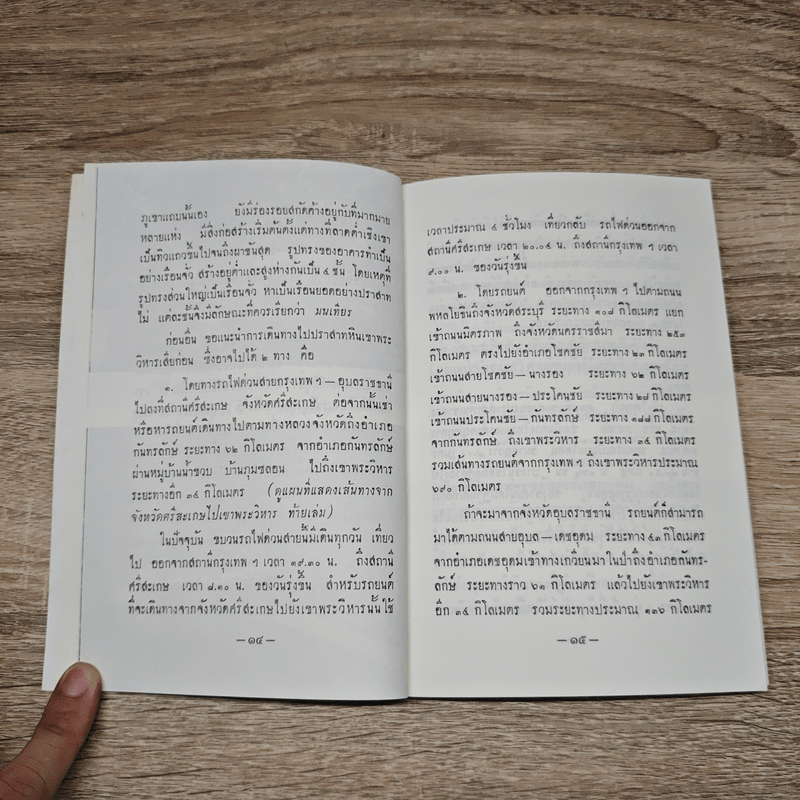 ภูเขาแถบนั้นเอง ยังมีร่องรอยสกัดค้างอยู่กับที่มากมาย
หลายแห่ง มีสิ่งก่อสร้างเริ่มต้นตั้งแต่ทางที่ลาดต่ำเชิงเขา
เป็นทิวแถวขึ้นไปจนถึงผาชันสุด รูปทรงของอาคารทำเป็น
อย่างเรือนจั่ว สร้างอยู่ต่ำและสูงห่างกันเป็น ๔ ชั้น โดยเหตุที่
รูปทรงส่วนใหญ่เป็นเรือนจั่ว หาเป็นเรือนยอดอย่างปราสาท
ไม่ แต่ละชั้นจึงมีลักษณะที่ควรเรียกว่า มนเทียร
ก่อนอื่น ขอแนะนำการเดินทางไปปราสาทหินเขาพระ
วิหารเสียก่อน ซึ่งอาจไปได้ ๒ ทาง คือ
๑. โดยทางรถไฟด่วนสายกรุงเทพ ฯ — อุบลราชธานี
ไปลงที่สถานีศรีสะเกษ จังหวัดศรีสะเกษ ต่อจากนั้นเช่า
หรือหารถยนต์เดินทางไปตามทางหลวงจังหวัดถึงอำเภอ
กันทรลักษ์ ระยะทาง ๖๒ กิโลเมตร จากอำเภอกันทรลักษ์
ผ่านหมู่บ้านน้ำขวบ บ้านภูมซถอน ไปถึงเขาพระวิหาร
ระยะทางอีก ๓๔ กิโลเมตร (ดูแผนที่แสดงเส้นทางจาก
จังหวัดศรีสะเกษไปเขาพระวิหาร ท้ายเล่ม)
ในปัจจุบัน ขบวนรถไฟด่วนสายนี้มีเดินทุกวัน เที่ยว
ไป ออกจากสถานีกรุงเทพ ฯ เวลา ๑๙.๓๐ น. ถึงสถานี
ศรีสะเกษ เวลา ๗.๑๐ น. ของวันรุ่งขึ้น สำหรับรถยนต์
ที่จะเดินทางจากจังหวัดศรีสะเกษไปยังเขาพระวิหารนั้นใช้
— ๑๔ —
เวลาประมาณ ๔ ชั่วโมง เที่ยวกลับ รถไฟด่วนออกจาก
สถานีศรีสะเกษ เวลา ๒๐.๐๔ น. ถึงสถานีกรุงเทพ ฯ เวลา
๙.๐๐ น. ของวันรุ่งขึ้น
๒. โดยรถยนต์ ออกจากกรุงเทพ ฯ ไปตามถนน
พหลโยธินถึงจังหวัดสระบุรี ระยะทาง ๑๐๘ กิโลเมตร แยก
เข้าถนนมิตรภาพ ถึงจังหวัดนครราชสีมา ระยะทาง ๒๕๓
กิโลเมตร ตรงไปยังอำเภอโชคชัย ระยะทาง ๒๓ กิโลเมตร
เข้าถนนสายโชคชัย—นางรอง ระยะทาง ๖๒ กิโลเมตร
เข้าถนนสายนางรอง—ประโคนชัย ระยะทาง ๒๗ กิโลเมตร
เข้าถนนประโคนชัย—กันทรลักษ์ ระยะทาง ๑๘๘ กิโลเมตร
จากกันทรลักษ์ ถึงเขาพระวิหาร ระยะทาง ๓๔ กิโลเมตร
รวมเส้นทางรถยนต์จากกรุงเทพ ฯ ถึงเขาพระวิหารประมาณ
๖๙๐ กิโลเมตร
ถ้าจะมาจากจังหวัดอุบลราชธานี รถยนต์ก็สามารถ
มาได้ตามถนนสายอุบล—เดชอุดม ระยะทาง ๔๓ กิโลเมตร
จากอำเภอเดชอุดมเข้าทางเกวียนมาในป่าถึงอำเภอกันทร-
ลักษ์ ระยะทางราว ๖๑ กิโลเมตร แล้วไปยังเขาพระวิหาร
อีก ๓๔ กิโลเมตร รวมระยะทางประมาณ ๑๓๖ กิโลเมตร
— ๑๕ —